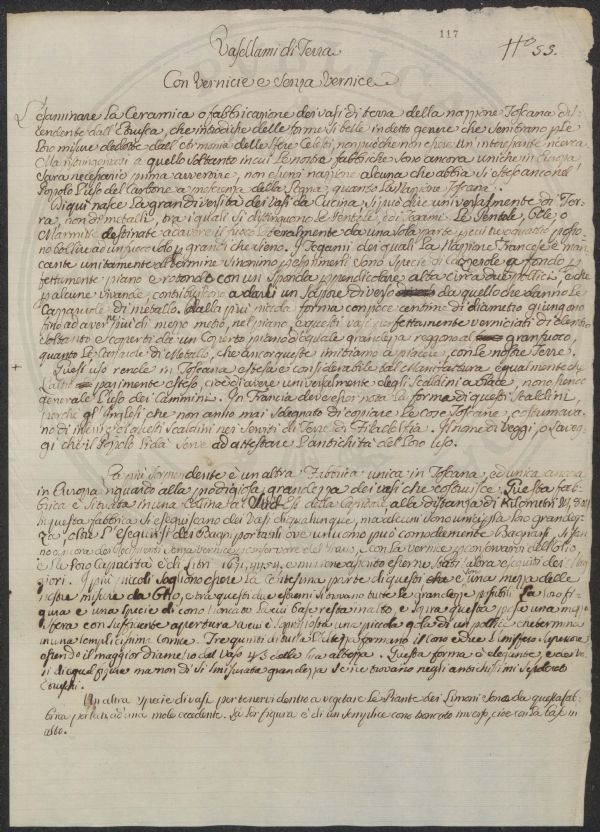 117
N.º 55.
Vasellami di Terra
Con Vernice e Senza Vernice
L'esaminare la Ceramica o fabbricazione dei vasi di terra della nazione Toscana dis-
cendente dall'Etrusca, che introdusse delle forme si belle in detto genere che sembrano
loro misure dedotte dall'armonia delle Sfere Celesti, non può che non essere un interessante ricerca.
a quello soltanto in cui le nostre fabbriche sono ancora uniche in Europa,
sara necessario prima avvertire, non esservi nazione alcuna che abbia si esteso anco nel
Popolo l'uso del Carbone a della Legna, quanto la Nazione Toscana.
Di qui nasce la gran diversità dei vasi da Cucina, si può dire universalmente di Ter-
ra, non di metalli, tra i quali si distinguono le Pentole, ei Tegami. Le Pentole, Olle, o
Marmite destinate a avere il fuoco lateralmente da una sola parte
no bollire ad un fuoco grandi che sieno. I Tegami dei quali la Nazione Francese è man-
cante unitamente al termine Sinonimo per esprimerli sono Specie di a fondo per-
fettamente piano e rotondo con un Sponda perpendicolare alta circa due pollici, e che
per alcune vivande, contribuiscono a darli un Sapore diverso da quello che danno le
di metallo. Dalla più piccola forma con dieci centime di diametro giungono
fino ad aver più di mezzo metro, nel piano, e questi vasi perfettamente verniciati di dentro
soltanto e coperti da un Coperto piano d'equale grandezza reggono al gran fuoco,
quanto le di Metallo, che ancor queste imitiamo a piacere, con le nostre Terre.
Quest'uso rende in Toscana estesa e considerabile tal Manifattura, egualmente che
l'altro parimente esteso, cioè di avere universalmente degli Scaldini a brace, non essendo
generale l'uso dei Cammini. In Francia deve esser nota la forma di questi Scaldini,
perchè gl'Inglesi che non anno mai sdegnato di copiare le cose Toscane, costumava-
no di questi Scaldini nei servizi di Terre di Filadelfia. Il nome di Veggi, o Laveg-
gi che il Popolo li dà serve ad attestare l'antichità del loro uso.
La più sorprendente è un altra Fabbrica unica in Toscana, ed unica ancora
in Europa riguardo alla prodigiosa grandezza dei vasi che costruisce. Questa fab-
brica è situata in una collina a Sud Est della Capitale, alla distanza di Kilometri
In questa fabbrica si eseguiscono dei Vasi di qualunque, ma alcuni sono unici per la loro grandez-
za, oltre l'eseguirsi dei Bagni portatili ove un uomo può comodamente Bagnarsi, si fan-
no ancora dei Recipienti Senza vernice per conservare del Grano, e con la vernice per conservarvi dell'Olio,
e la loro Capacità è di Libri e mi viene asserito esserne stati altra volta eseguiti dei mag-
giori. I più piccoli sogliono essere la Centesima parte di questi è una mezza delle
nostre misure da Olio, e tra questi due estremi si trovano tutte le grandezze possibili. La loro fi-
gura è una specie di cono troncato la cui base resta in alto, e sopra questa posa una mez-
za sfera con sufficiente apertura a cui è soprapposta una piccola gola di un pollice che termina
in una semplicissima cornice. Tre quinti di tutta l'altezza formano il cono e due l'emisfero Superiore
essendo il maggior diametro del vaso 4/5 della sua altezza. Questa forma è elegante, e dei va-
si di egual figura ma non di si smisurata grandezza se ne trovano negli antichissimi sepolcri
Etruschi.
Un altra specie di vasi per tenervi dentro a vegetare le Piante dei Limoni sono da questa fab-
brica portati ad una mole eccedente. La lor figura è di un semplice cono troncato inverso, cioè con la base in
alto.